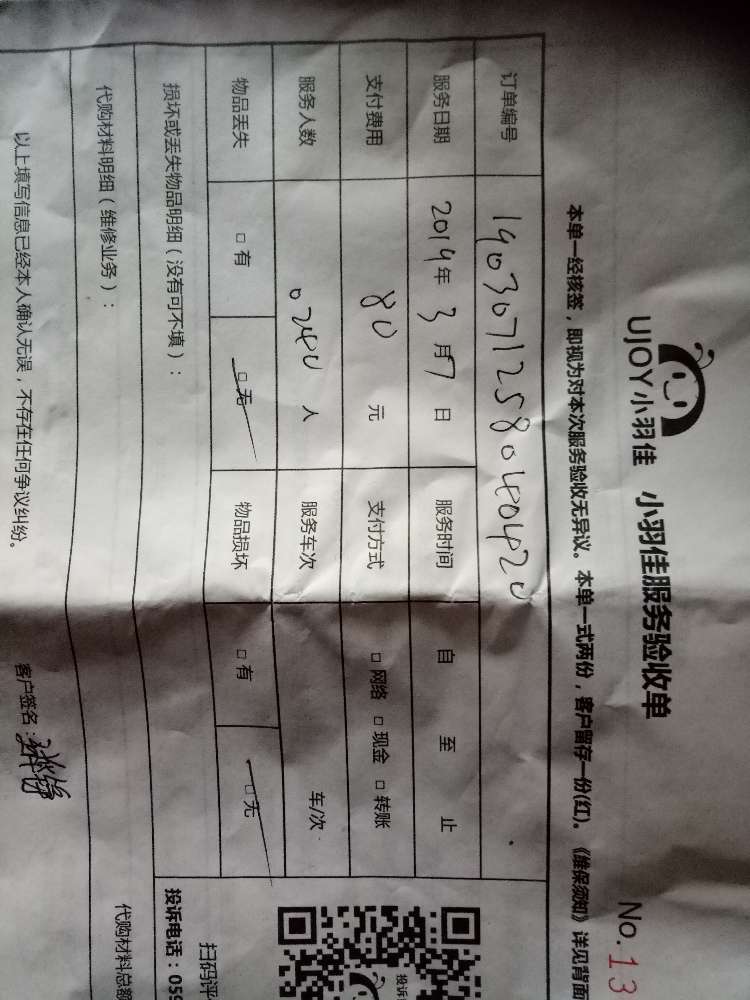 UJOY小羽佳 小羽佳服务验收单
No.13
本单一经核签，即视为对本次服务验收无异议。本单一式两份，客户留存一份(红)。《维保须知》详见背面
订单编号 190307125804804020
服务日期 2019年 3月7日 服务时间 自 至 止
支付费用 80 元 支付方式 □网络 □现金 □转账
服务人数 0240 人 服务车次 车/次
物品丢失 □有 □无 物品损坏 □有 □无
损坏或丢失物品明细（没有可不填）：
代购材料明细（维修业务）：
以上填写信息已经本人确认无误，不存在任何争议纠纷。 客户签名：
投诉
扫码评
投诉电话：059
代购材料总额